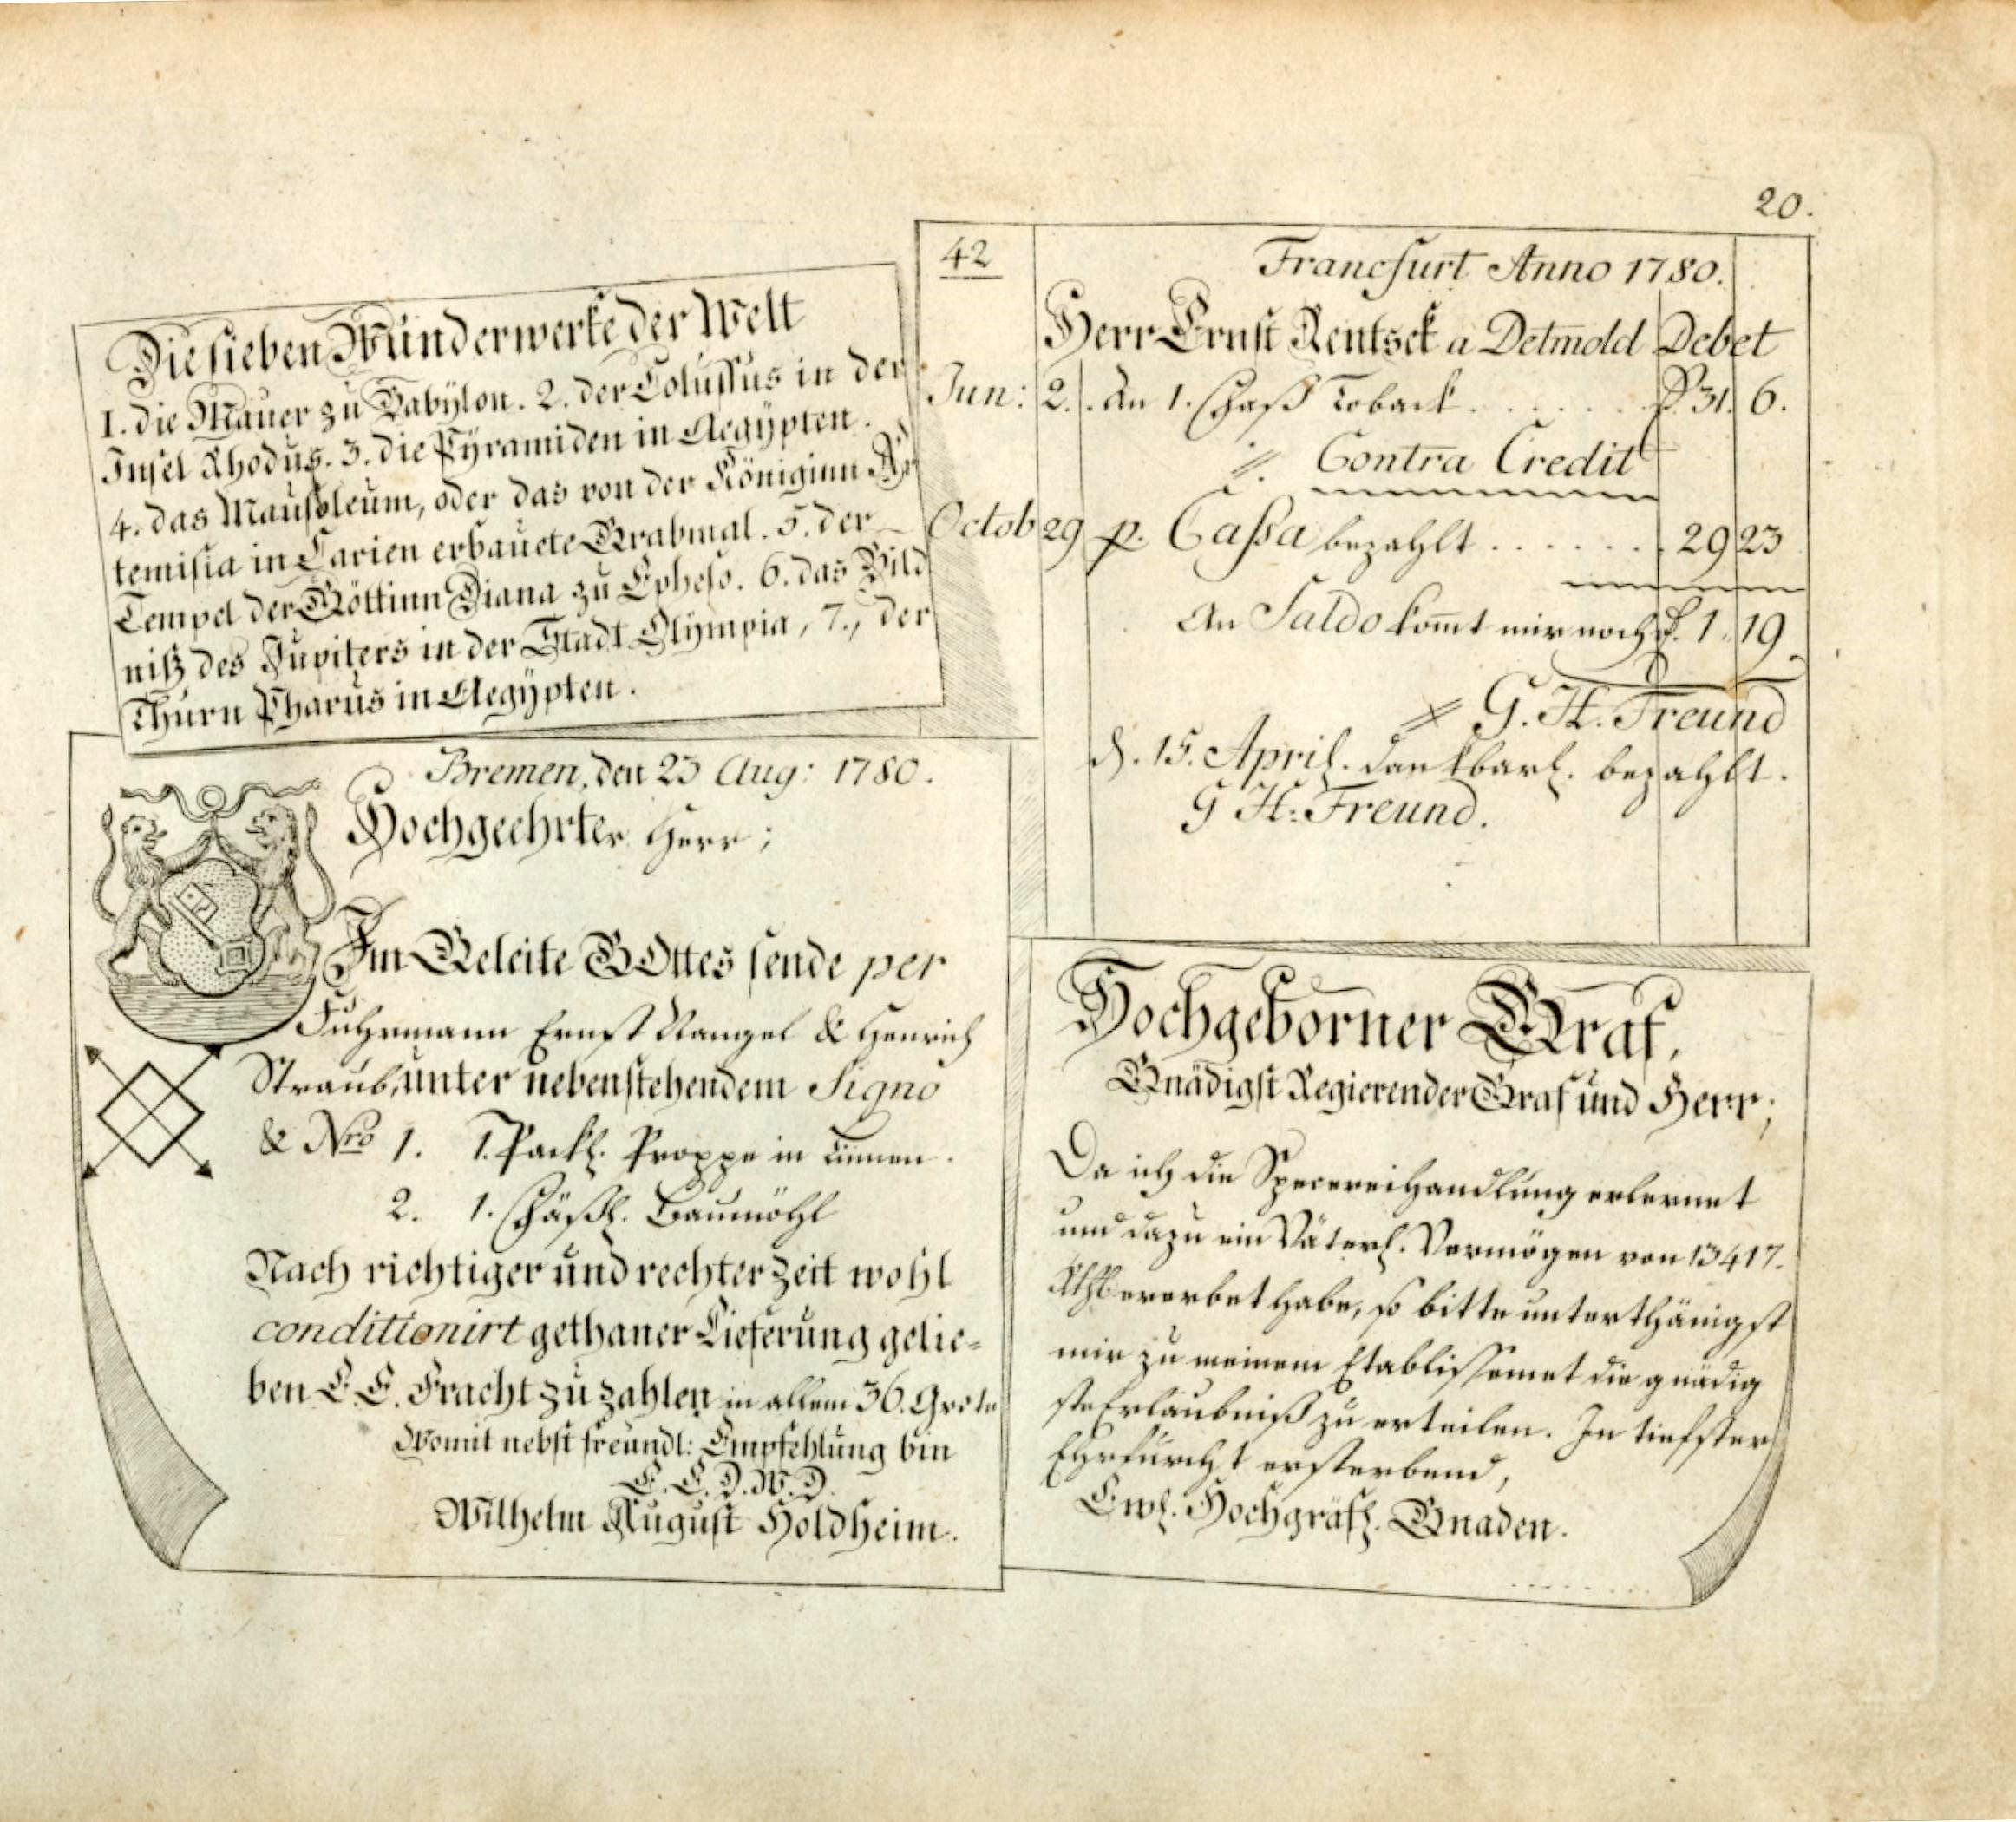 20.
Die sieben Wunderwerke der Welt
1. die Mauer zu Babÿlon. 2. der Colussus in der
Insel Rhodus. 3. die Pÿramiden in Aegÿpten.
4. das Mausoleum, oder das von der Königinn Ar
temisia in Carien erbauete Grabmal. 5. der
Tempel der Göttinn Diana zu Epheso. 6. das Bild
niß des Jupiters in der Stadt Olÿmpia, 7., der
Thurn Pharus in Aegÿpten.
42
Francfurt Anno 1780.
Herr Ernst Rentsck a Detmold Debet
Jun: 2. An 1. Faß Toback . . . . . . 31. 6.
Contra Credit
Octob 29 p. Cassa bezahlt . . . . . . 29 23
An Saldo kom̄t mir noch 1. 19
G. H. Freund
d. 15. April. dankbarl. bezahlt.
G H: Freund.
Bremen, den 23 Aug: 1780.
Hochgeehrter Herr;
Im Geleite GOttes sende per
Fuhrmann Ernst Nangel & Henrich
Straub, unter nebenstehendem Signo
& Nro 1. 1. Packl. Proppe in Linnen.
2. 1. Fäßl. Baumöhl
Nach richtiger und rechter Zeit wohl
conditionirt gethaner Lieferung gelie=
ben E. E. Fracht zu zahlen in allem 36. Grote
Womit nebst freundl: Empfehlung bin
E. E. D. W. D.
Wilhelm August Holdheim.
Hochgeborner Graf,
Gnädigst Regierender Graf und Herr;
Da ich die Specereihandlung erlernet
und dazu ein Väterl. Vermögen von 13417.
Rthl ererbet habe, so bitte unterthänigst
mir zu meinem Etablissemet die gnädig
ste Erlaubniß zu erteilen. In tiefster
Ehrfurcht ersterbend,
Ewl. Hochgräfl. Gnaden.